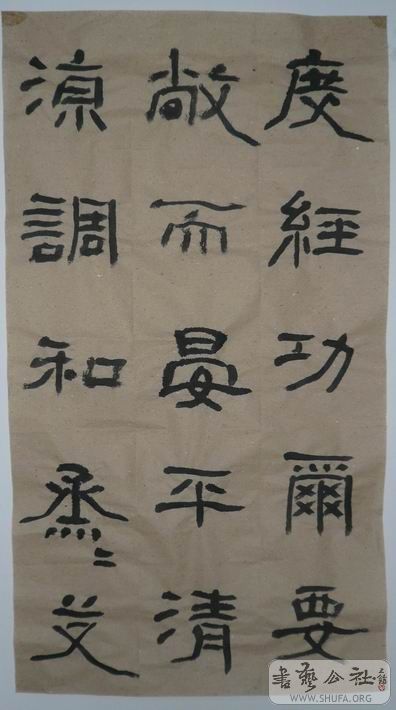 度經功爾要
敞而晏平清
涼調和烝〻艾
書藝公社
WWW.SHUFA.ORG